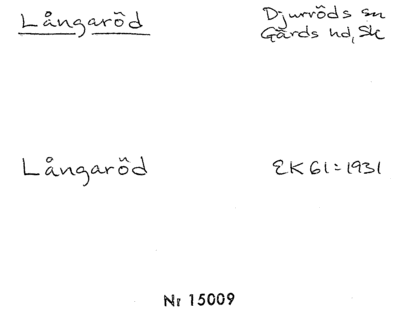 Långaröd
Djurröds sn
Gärds hd, Sk
Långaröd
EK 61 = 1931
Nr 15009